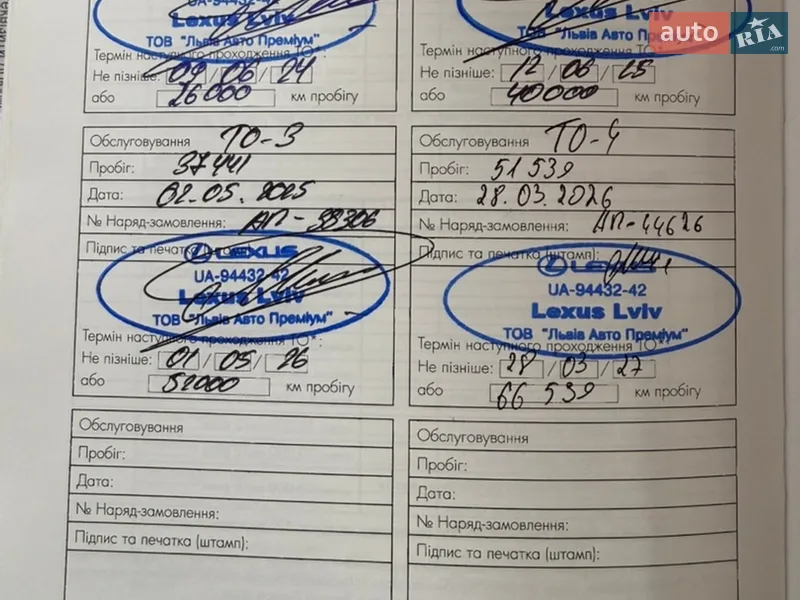 UA-94432-42
Lexus Lviv
ТОВ "Львів Авто Преміум"
Термін наступного проходження ТО*:
Не пізніше: 09 / 06 / 24
або 26000 км пробігу
Lexus Lviv
ТОВ "Львів Авто Преміум"
Термін наступного проходження ТО*:
Не пізніше: 12 / 06 / 25
або 40000 км пробігу
auto RIA .com
Обслуговування ТО-3
Пробіг: 37441
Дата: 02.05.2025
№ Наряд-замовлення: АП-38306
Підпис та печатка
LEXUS
UA-94432-42
Lexus Lviv
ТОВ "Львів Авто Преміум"
Термін наступного проходження ТО*:
Не пізніше: 01 / 05 / 26
або 52000 км пробігу
Обслуговування ТО-4
Пробіг: 51 539
Дата: 28.03.2026
№ Наряд-замовлення: АП-44626
Підпис та печатка (штамп):
LEXUS
UA-94432-42
Lexus Lviv
ТОВ "Львів Авто Преміум"
Термін наступного проходження ТО*:
Не пізніше: 28 / 03 / 27
або 66 539 км пробігу
Обслуговування
Пробіг:
Дата:
№ Наряд-замовлення:
Підпис та печатка (штамп):
Обслуговування
Пробіг:
Дата:
№ Наряд-замовлення:
Підпис та печатка (штамп):